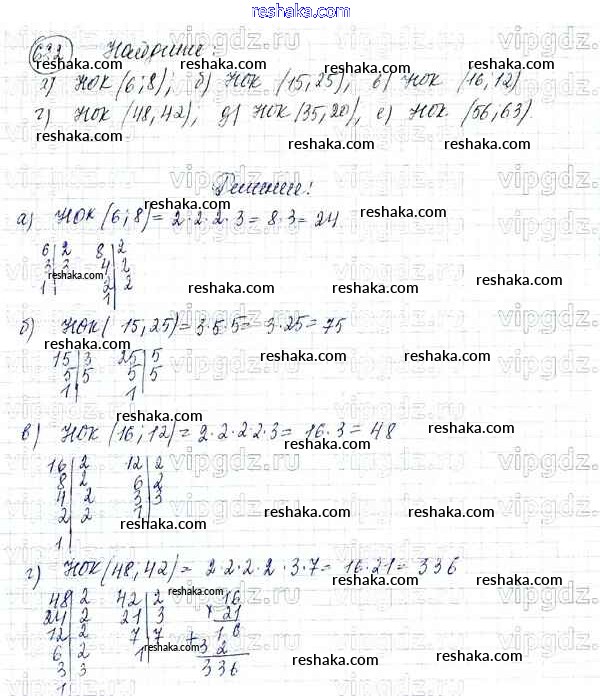 reshaka.com
632 Найдите:
а) НОК (6;8); б) НОК (15,25), в) НОК (16,12)
г) НОК (48,42); д) НОК (35,20), е) НОК (56,63).
Решение:
а) НОК (6;8) = 2·2·2·3 = 8·3 = 24
6 | 2 8 | 2
3 | 3 4 | 2
1 | 2 | 2
1
б) НОК ( 15,25) = 3·5·5 = 3·25 = 75
15 | 3 25 | 5
5 | 5 5 | 5
1 | 1
в) НОК (16;12) = 2·2·2·2·3 = 16·3 = 48
16 | 2 12 | 2
8 | 2 6 | 2
4 | 2 3 | 3
2 | 2 1
1
г) НОК (48;42) = 2·2·2·2·3·7 = 16·21 = 336
48 | 2 42 | 2 16
24 | 2 21 | 3 × 21
12 | 2 7 | 7 + 16
6 | 2 1 32
3 | 3 336
1